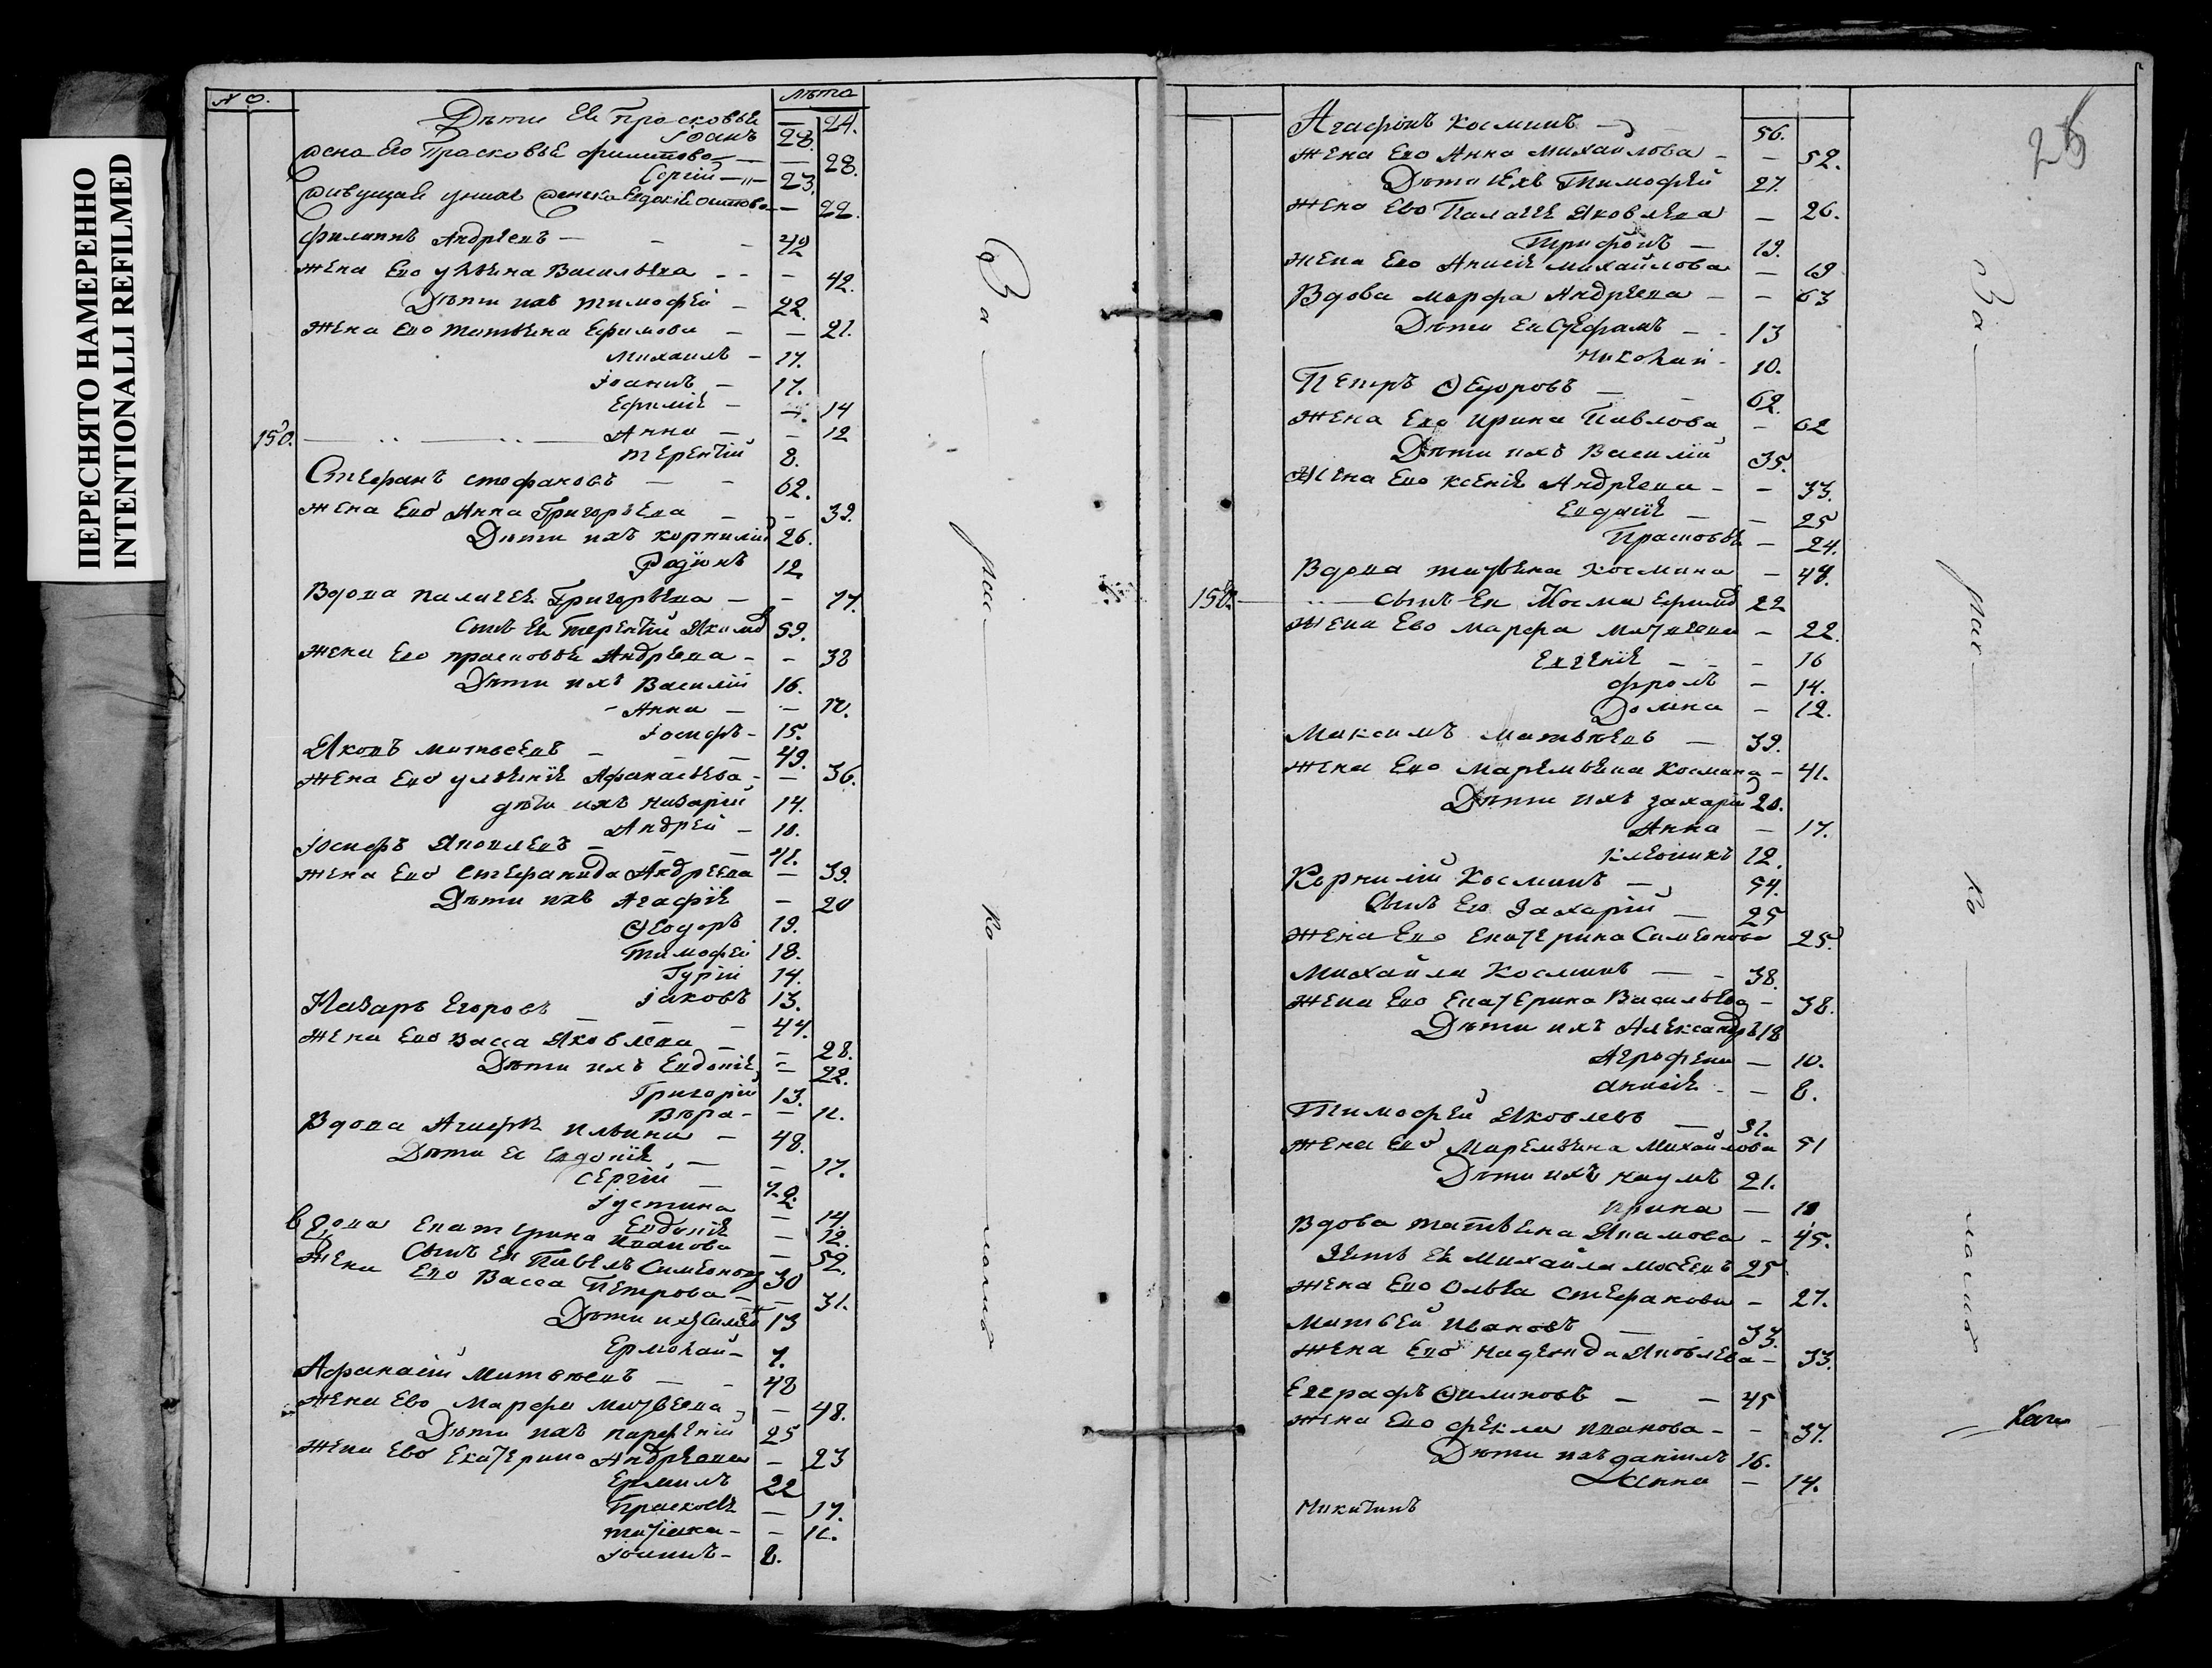 ПЕРЕСНЯТО НАМЕРЕННО
INTENTIONALLI REFILMED
№
лѣта
Дѣти Ея Прасковья — 24.
Іоанъ 28.
жена Его Прасковье филипова — 28.
Сергій — 23.
живущая унихъ женка Евдокія — 22.
филипъ Андреевъ — 42
жена Ево Васильева — 42.
Дѣти ихъ тимофей — 22.
жена Ево татьяна Ефимова — 21.
михаилъ — 17.
іоаннъ — 17.
Ефиміе — 14
150. Анна — 12
терентій 8.
Стефанъ стефановъ — 62.
жена Ево Анна Григорьева — 39.
Дѣти ихъ корнилій 26.
Родіонъ 12
Вдова палагея Григорьева — 77.
сынъ Ея терентій 59.
жена Его прасковья Андреева — 38
Дѣти ихъ Василій 16.
Анна — 17.
іосифъ — 15.
Яковъ матвеевъ — 49.
жена Ево Афанасьева — 36.
дѣти ихъ назарій 14.
Андрей — 10.
іосифъ Яковлевъ — 41.
жена Ево стефанида Андреева — 39.
Дѣти ихъ Агафіе — 20
Ѳеодоръ 19.
тимофей 18.
Гурій 14.
іаковъ 13.
Назаръ Егоровъ — 44.
жена Ево васса Яковлева — 28.
Дѣти ихъ Евдокіе — 22.
Григорій 13.
Вѣра — 11.
Вдова Агафья ильина — 48.
Дѣти Ея Евдокіе — 17.
Сергій
іустина — 14.
Евдокіе — 12.
вдова Екатерина иванова — 52.
Сынъ Ея Павелъ Симеоновъ 30
жена Ево Васса Петрова — 31.
Дѣти ихъ 13
Ермолай — 7.
Афанасій Матвѣевъ — 48
жена Ево Марфа — 48.
Дѣти ихъ парфеній 25
жена Ево Екатерина Андреева — 23
Ермилъ 22
Прасковья — 17.
татіана — 11.
іоаннъ — 8.
За
ко
26
Агафонъ Косминъ — 56.
жена Ево Анна михайлова — 52.
Дѣти ихъ тимофей 27.
жена Ево Палагея Яковлева — 26.
Трифонъ — 19.
жена Ево Анисіе михайлова — 19
Вдова марфа Андреева — 63
Дѣти Ея Стефанъ — 13
николай — 10.
Петръ Ѳедоровъ — 62.
жена Ево ирина Павлова — 62
Дѣти ихъ Василій 35.
жена Ево ксеніе Андреева — 33.
Евдокіе — 25
Прасковья — 24.
Вдова татьяна космина — 48.
150. сынъ Ея Косма 22
жена Ево марфа — 22.
Евгеніе — 16
фролъ — 14.
Домна — 12.
Максимъ матвѣевъ — 39.
жена Ево маремьяна космина — 41.
Дѣти ихъ захарій 20.
Анна — 17.
12.
Корнилій Косминъ — 54.
Сынъ Его Захарій — 25
жена Ево Екатерина Симеонова 25.
михайла Косминъ — 38.
жена Ево Екатерина Васильева — 38.
Дѣти ихъ Александръ 18
Агрофена — 10.
анисіе — 8.
Тимофей Яковлевъ — 51.
жена Ево Маремьяна Михайлова 51
Дѣти ихъ наумъ 21.
ирина — 18
Вдова татьяна — 45.
Зять Ея михайла мосеевъ 25
жена Ево Ольга стефанова — 27.
матвей ивановъ — 33.
жена Ево надежда Яковлева — 33.
Евграфъ Филиповъ — 45
жена Ево фекла иванова — 37.
Дѣти ихъ даніилъ 16.
Анна — 14.
никитинъ
За
ко